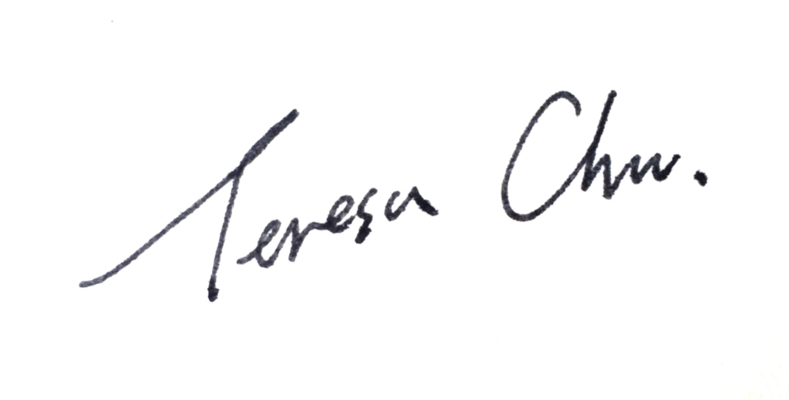 Teresa Chu.